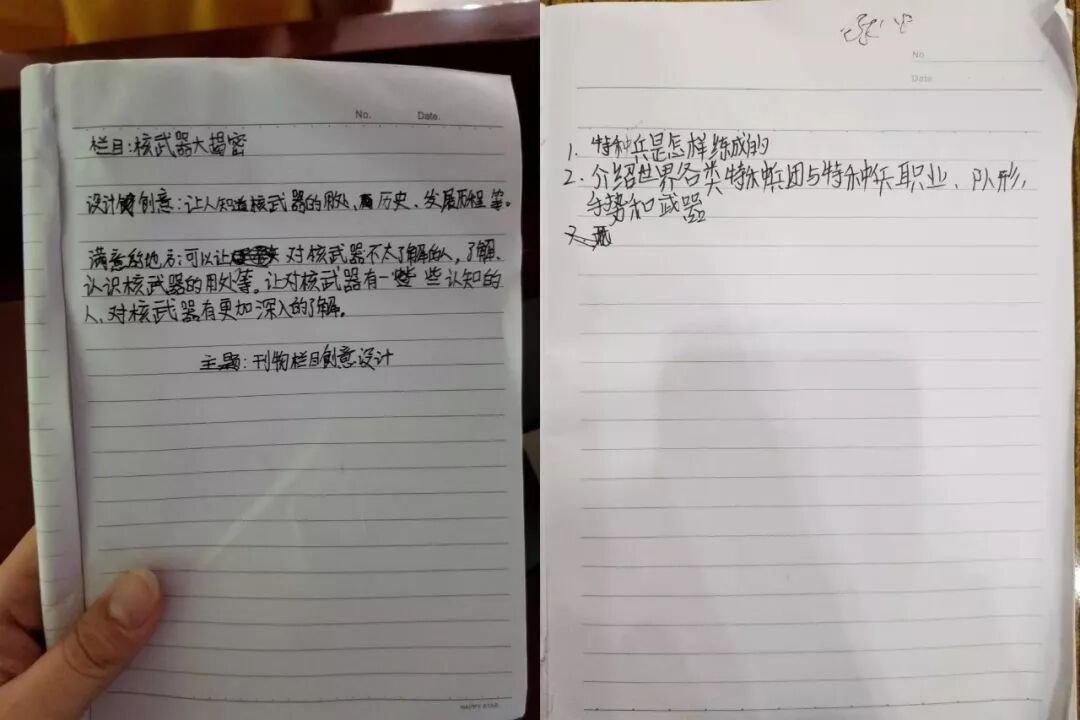 No. Date.
栏目:核武器大揭密
设计创意:让人知道核武器的用处、历史、发展历程等。
满意的地方:可以让对核武器不太了解的人,了解、
认识核武器的用处等。让对核武器有一些些认知的
人、对核武器有更加深入的了解。
主题:刊物栏目创意设计
HAPPY STAR
No
Date
1. 特种兵是怎样练成的
2. 介绍世界各类特种兵团与特种兵职业、队形,
手势和武器